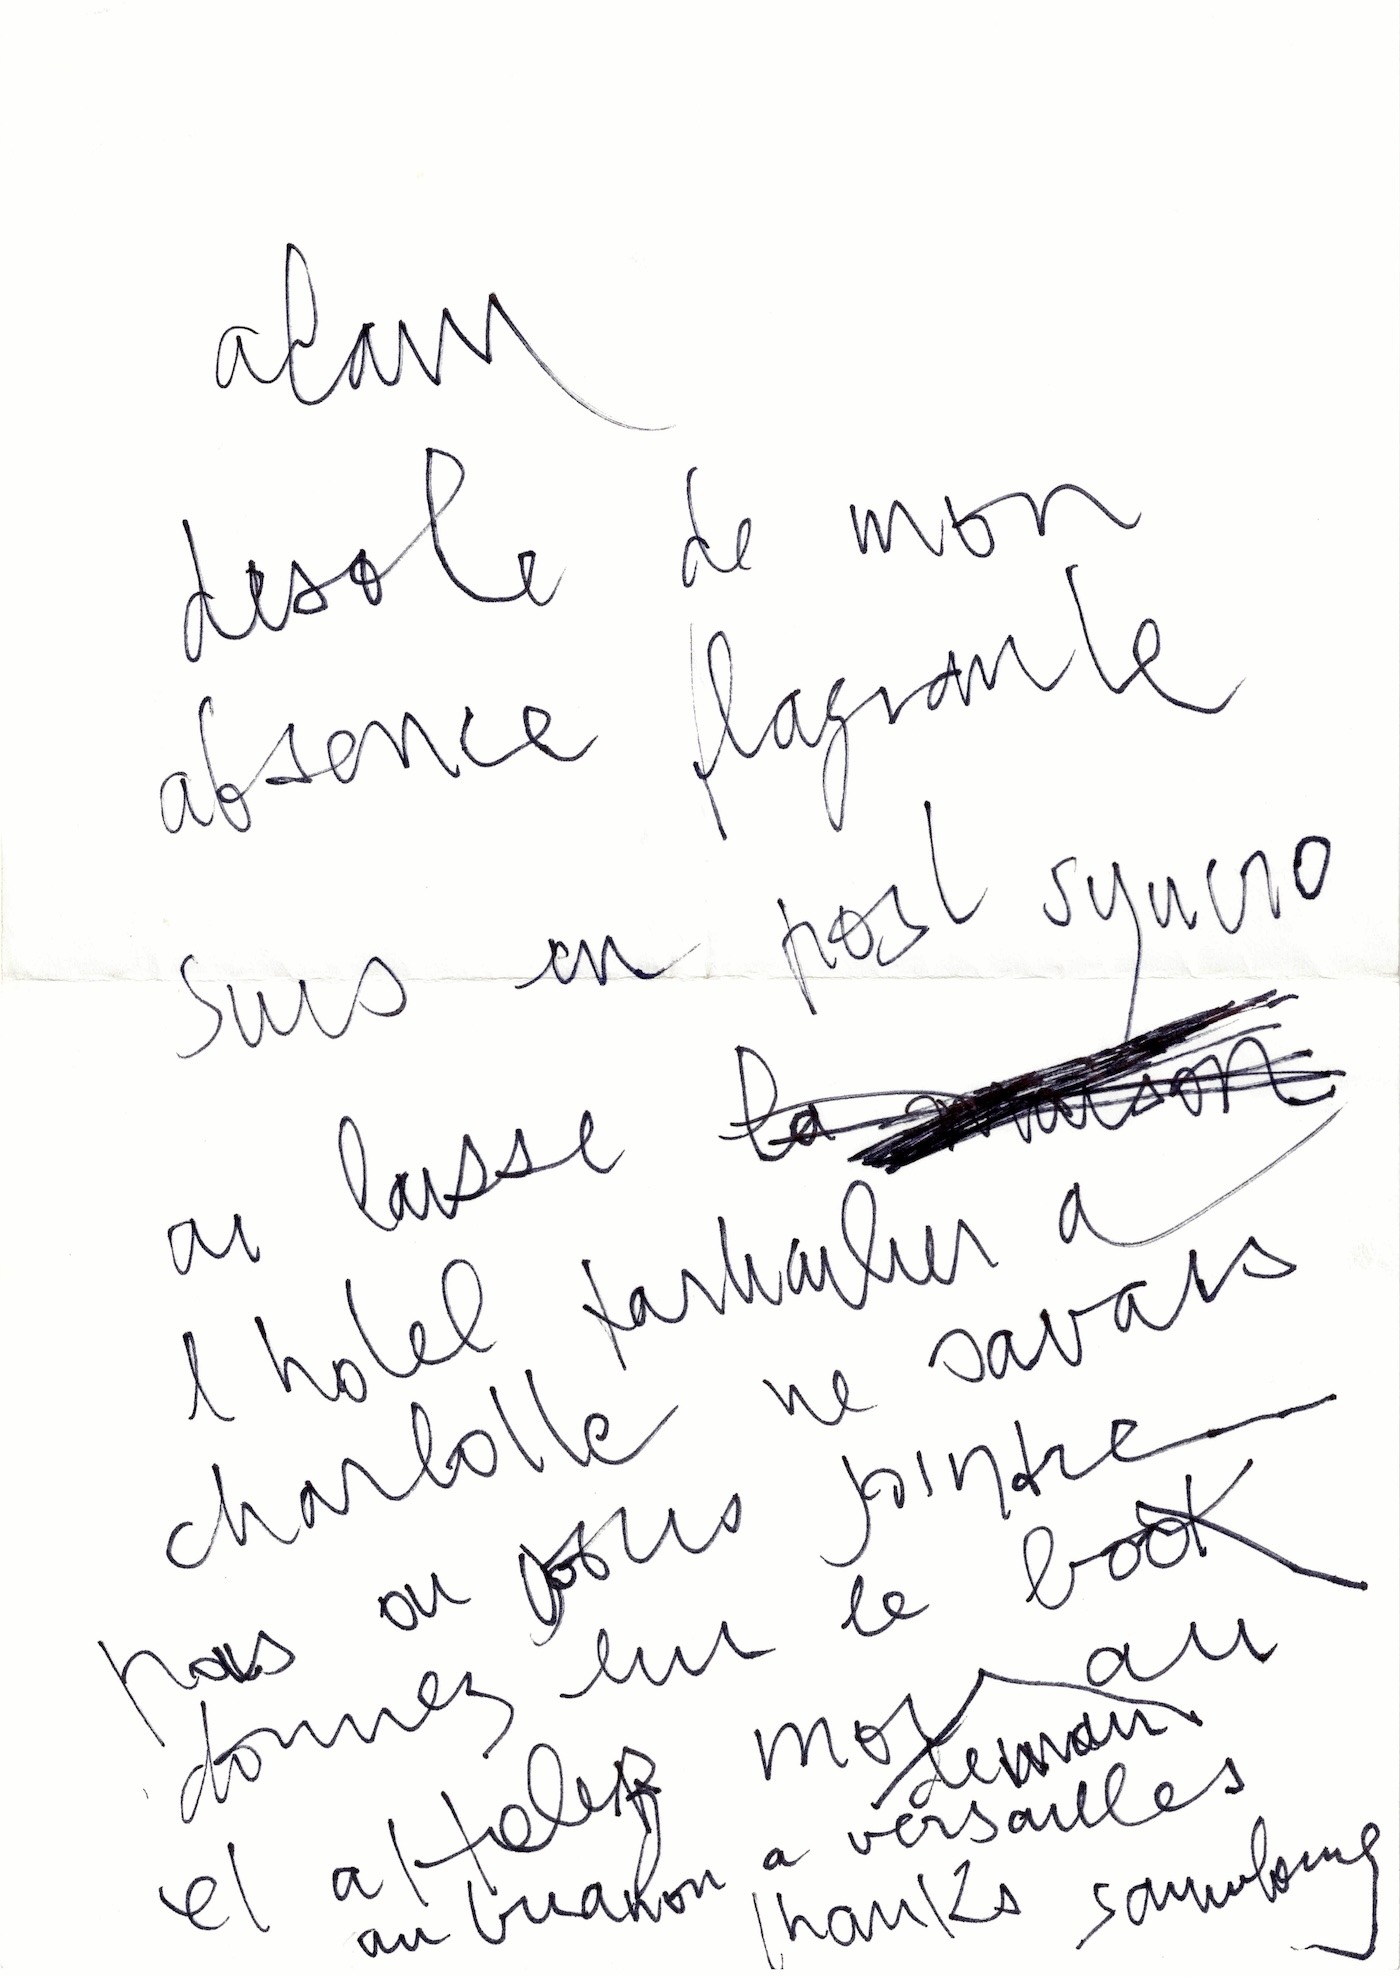 alain
desole de mon
absence flagrante
suis en post syncro
ai laisse la maison
l hotel particulier a
charlotte ne savais
pas ou vous joindre
donnez lui le book
et attelez moi au
demain
au trianon a versailles
thanks gainsbourg